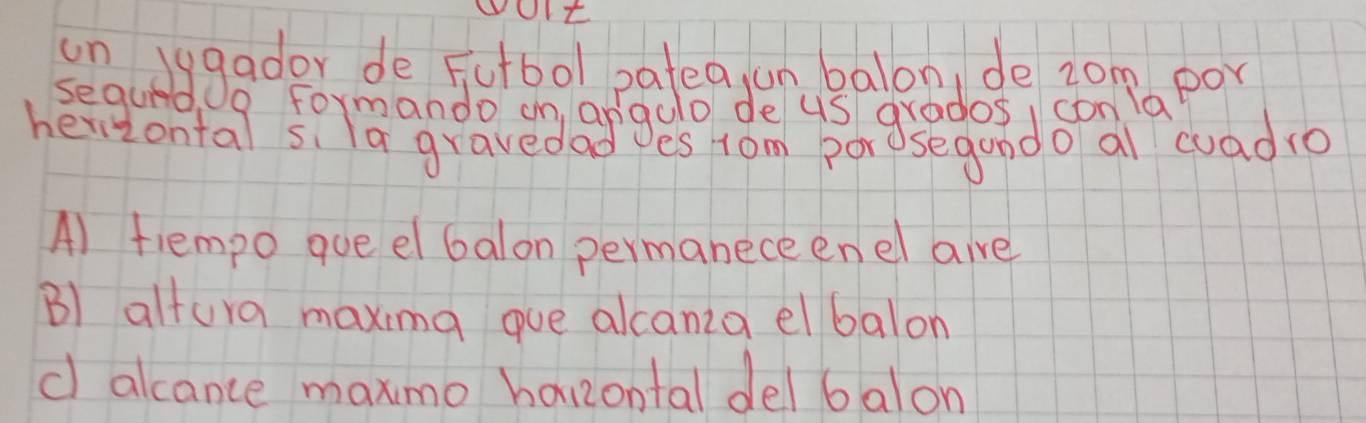 un jugador de Futbol patea un balon, de 20m por
segundo formando un angulo de 45 grados, con la
herizontal si la gravedad es 10m por segundo al cuadro
A) tiempo que el balon permanece en el aire
B) altura maxima que alcanza el balon
c) alcance maximo horizontal del balon